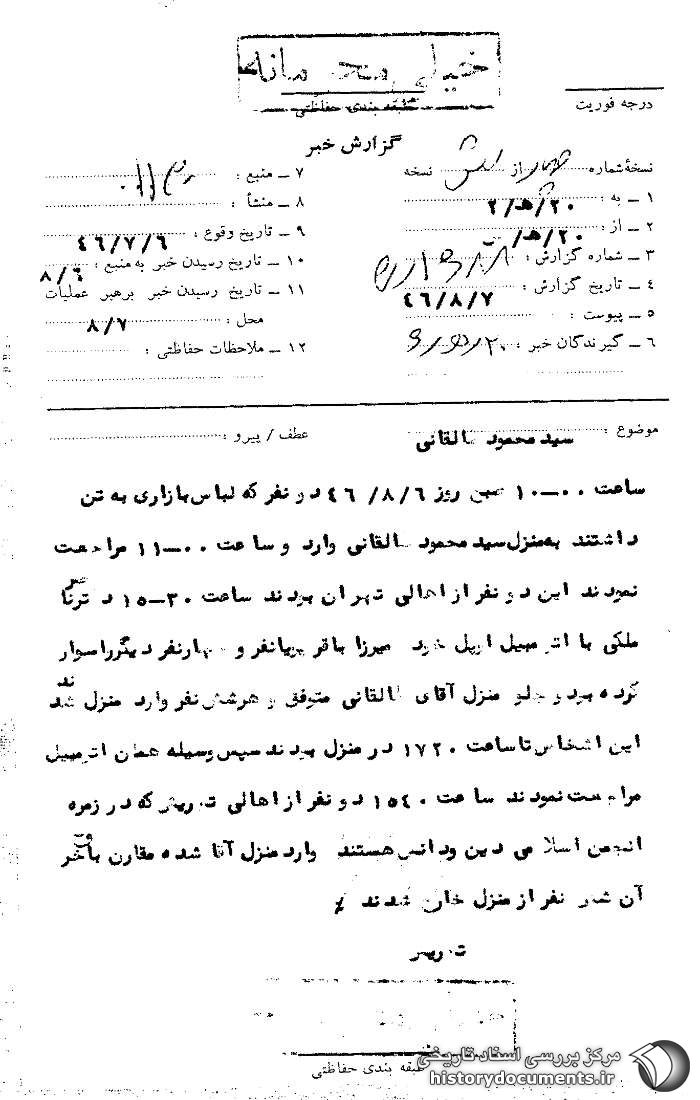 خیلی محرمانه
طبقه بندی حفاظتی
درجه فوریت
گزارش خبر
نسخهٔ شماره از شش نسخه
۱ ــ به : ۲۰/هـ/۲
۲ ــ از : ۲۰/هـ/
۳ ــ شماره گزارش :
۴ ــ تاریخ گزارش : ۴۶/۸/۷
۵ ــ پیوست :
۶ ــ گیرندگان خبر :
۷ ــ منبع :
۸ ــ منشأ :
۹ ــ تاریخ وقوع : ۴۶/۷/۶
۱۰ ــ تاریخ رسیدن خبر به منبع : ۸/۶
۱۱ ــ تاریخ رسیدن خبر برهبر عملیات
محل : ۸/۷
۱۲ ــ ملاحظات حفاظتی :
موضوع : سید محمود طالقانی
عطف / پیرو :
ساعت ۰۰ـ۱۰ صبح روز ۴۶/۸/۶ دو نفر که لباس بازاری به تن
داشتند به منزل سید محمود طالقانی وارد و ساعت ۰۰ـ۱۱ مراجعت
نمودند این دو نفر از اهالی تهران بودند ساعت ۳۰ـ۱۵
ملکی با اتومبیل اوپل خود میرزا باقر و چهار نفر دیگر را سوار
کرده بود و جلو منزل آقای طالقانی متوقف و هر شش نفر وارد منزل شدند
این اشخاص تا ساعت ۱۷۲۰ در منزل بودند سپس وسیله همان اتومبیل
مراجعت نمودند ساعت ۱۵۴۰ دو نفر از اهالی که در زمره
انجمن اسلامی دین و دانش هستند وارد منزل آقا شده مقارن باخروج
آن شش نفر از منزل خارج شدند
طبقه بندی حفاظتی
مرکز بررسی اسناد تاریخی
historydocuments.ir